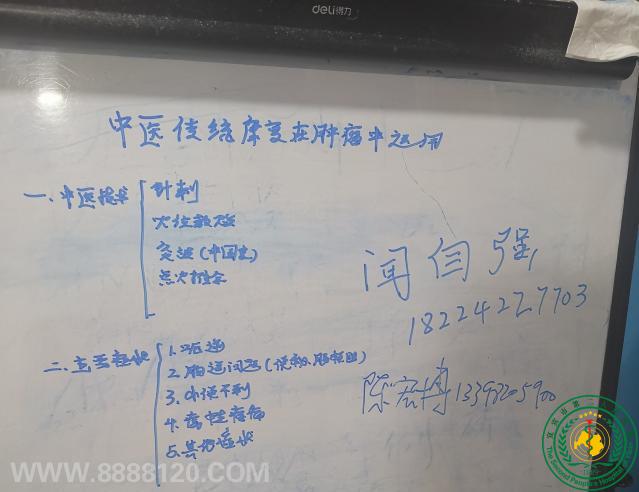 deli得力
中医传统康复在肿瘤中运用
一、中医技术
针刺
穴位敷贴
灸法(中国灸)
点穴推拿
闻闫强
18224227703
二、主要症状
1.呃逆
2.肠道问题(便秘、肠梗阻)
3.小便不利
4.癌性疼痛
5.其他症状
陈宏博
WWW.8888120.COM
The Second People's Hospital